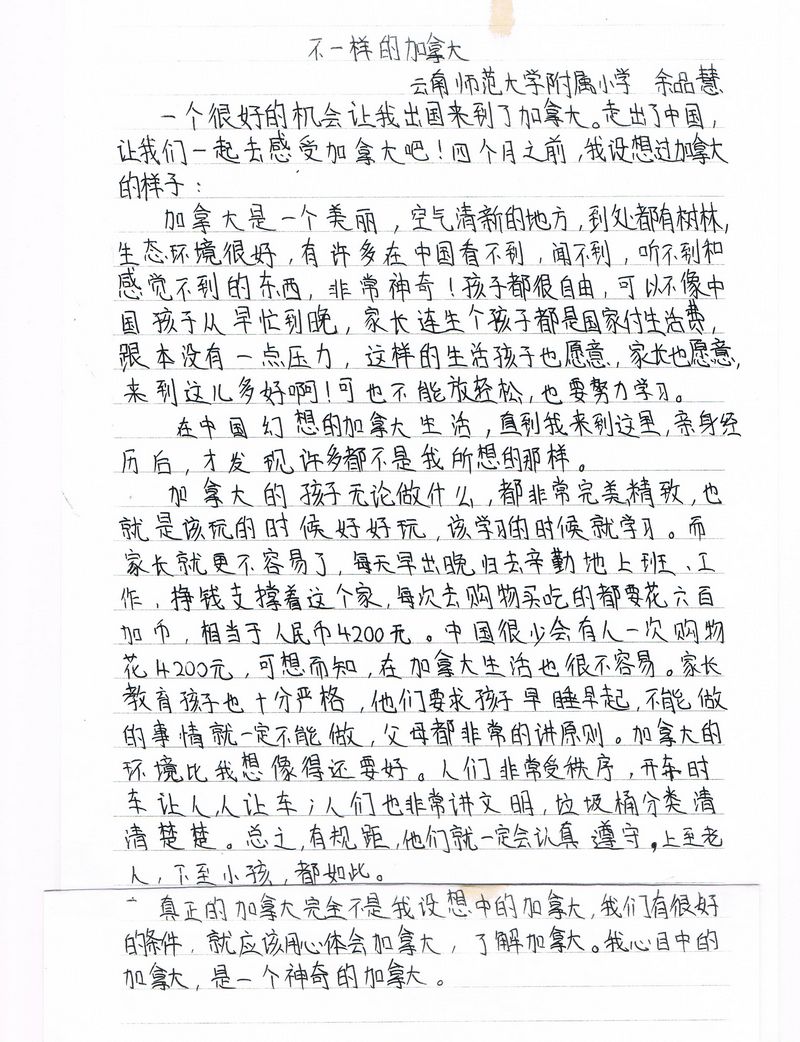 不一样的加拿大
云南师范大学附属小学 余品慧
一个很好的机会让我出国来到了加拿大。走出了中国，
让我们一起去感受加拿大吧！四个月之前，我设想过加拿大
的样子：
加拿大是一个美丽，空气清新的地方，到处都有树林，
生态环境很好，有许多在中国看不到，闻不到，听不到和
感觉不到的东西，非常神奇！孩子都很自由，可以不像中
国孩子从早忙到晚，家长连生个孩子都是国家付生活费，
跟本没有一点压力，这样的生活孩子也愿意，家长也愿意，
来到这儿多好啊！可也不能放轻松，也要努力学习。
在中国幻想的加拿大生活，直到我来到这里，亲身经
历后，才发现许多都不是我所想的那样。
加拿大的孩子无论做什么，都非常完美精致，也
就是该玩的时候好好玩，该学习的时候就学习。而
家长就更不容易了，每天早出晚归去辛勤地上班、工
作，挣钱支撑着这个家，每次去购物买吃的都要花六百
加币，相当于人民币4200元。中国很少会有人一次购物
花4200元，可想而知，在加拿大生活也很不容易。家长
教育孩子也十分严格，他们要求孩子早睡早起，不能做
的事情就一定不能做，父母都非常的讲原则。加拿大的
环境比我想像得还要好。人们非常受秩序，开车时
车让人，人让车；人们也非常讲文明，垃圾桶分类清
清楚楚。总之，有规距，他们就一定会认真遵守。上至老
人，下至小孩，都如此。
真正的加拿大完全不是我设想中的加拿大，我们有很好
的条件，就应该用心体会加拿大，了解加拿大。我心目中的
加拿大，是一个神奇的加拿大。